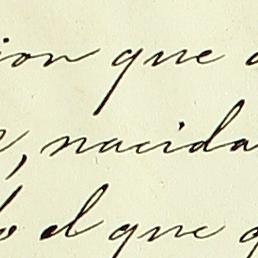 ion que
, nacida
el que